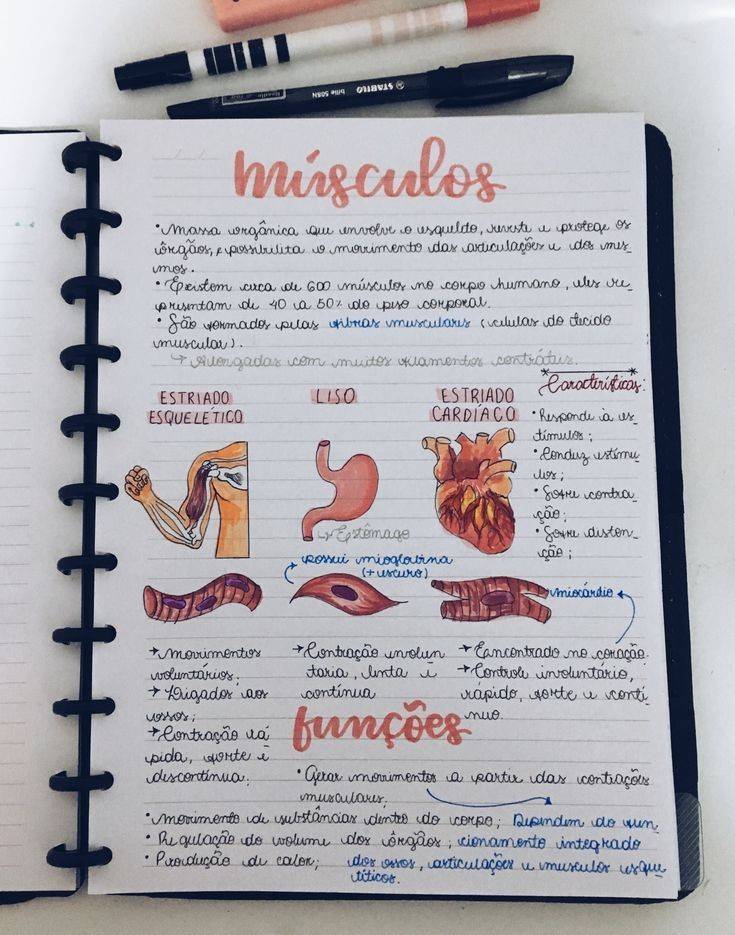 STABILO bille 508N
músculos
• Massa orgânica que envolve o esqueldo, reveste e protege os
órgãos, e possibilita o movimento das articulações e dos mes-
mos.
• Existem cerca de 600 músculos no corpo humano, eles re-
presentam de 40 a 50% do peso corporal.
• São formados pelas fibras musculares (celulas do tecido
muscular).
↳ Alongadas com muitos filamentos contráteis.
ESTRIADO
ESQUELÉTICO
LISO
ESTRIADO
CARDÍACO
Características:
• Responde à es-
tímulos;
• Conduz estímu-
los;
• Sofre contra-
ção;
• Sofre disten-
ção;
→ Estômago
possui mioglobina
(+ escuro)
miocárdio
→ movimentos
voluntários;
→ Ligados aos
ossos;
→ Contração rá-
pida, forte e
descontínua;
→ Contração involun
taria, lenta e
contínua
→ Encontrado no coração.
→ Controle involuntário,
rápido, forte e contí-
nuo.
funções
• Gerar movimentos a partir das contrações
musculares;
• movimento de substâncias dentro do corpo;
• Regulação do volume dos órgãos;
• Produção de calor;
Dependem do fun-
cionamento integrado
dos ossos, articulações e musculos esque-
léticos.